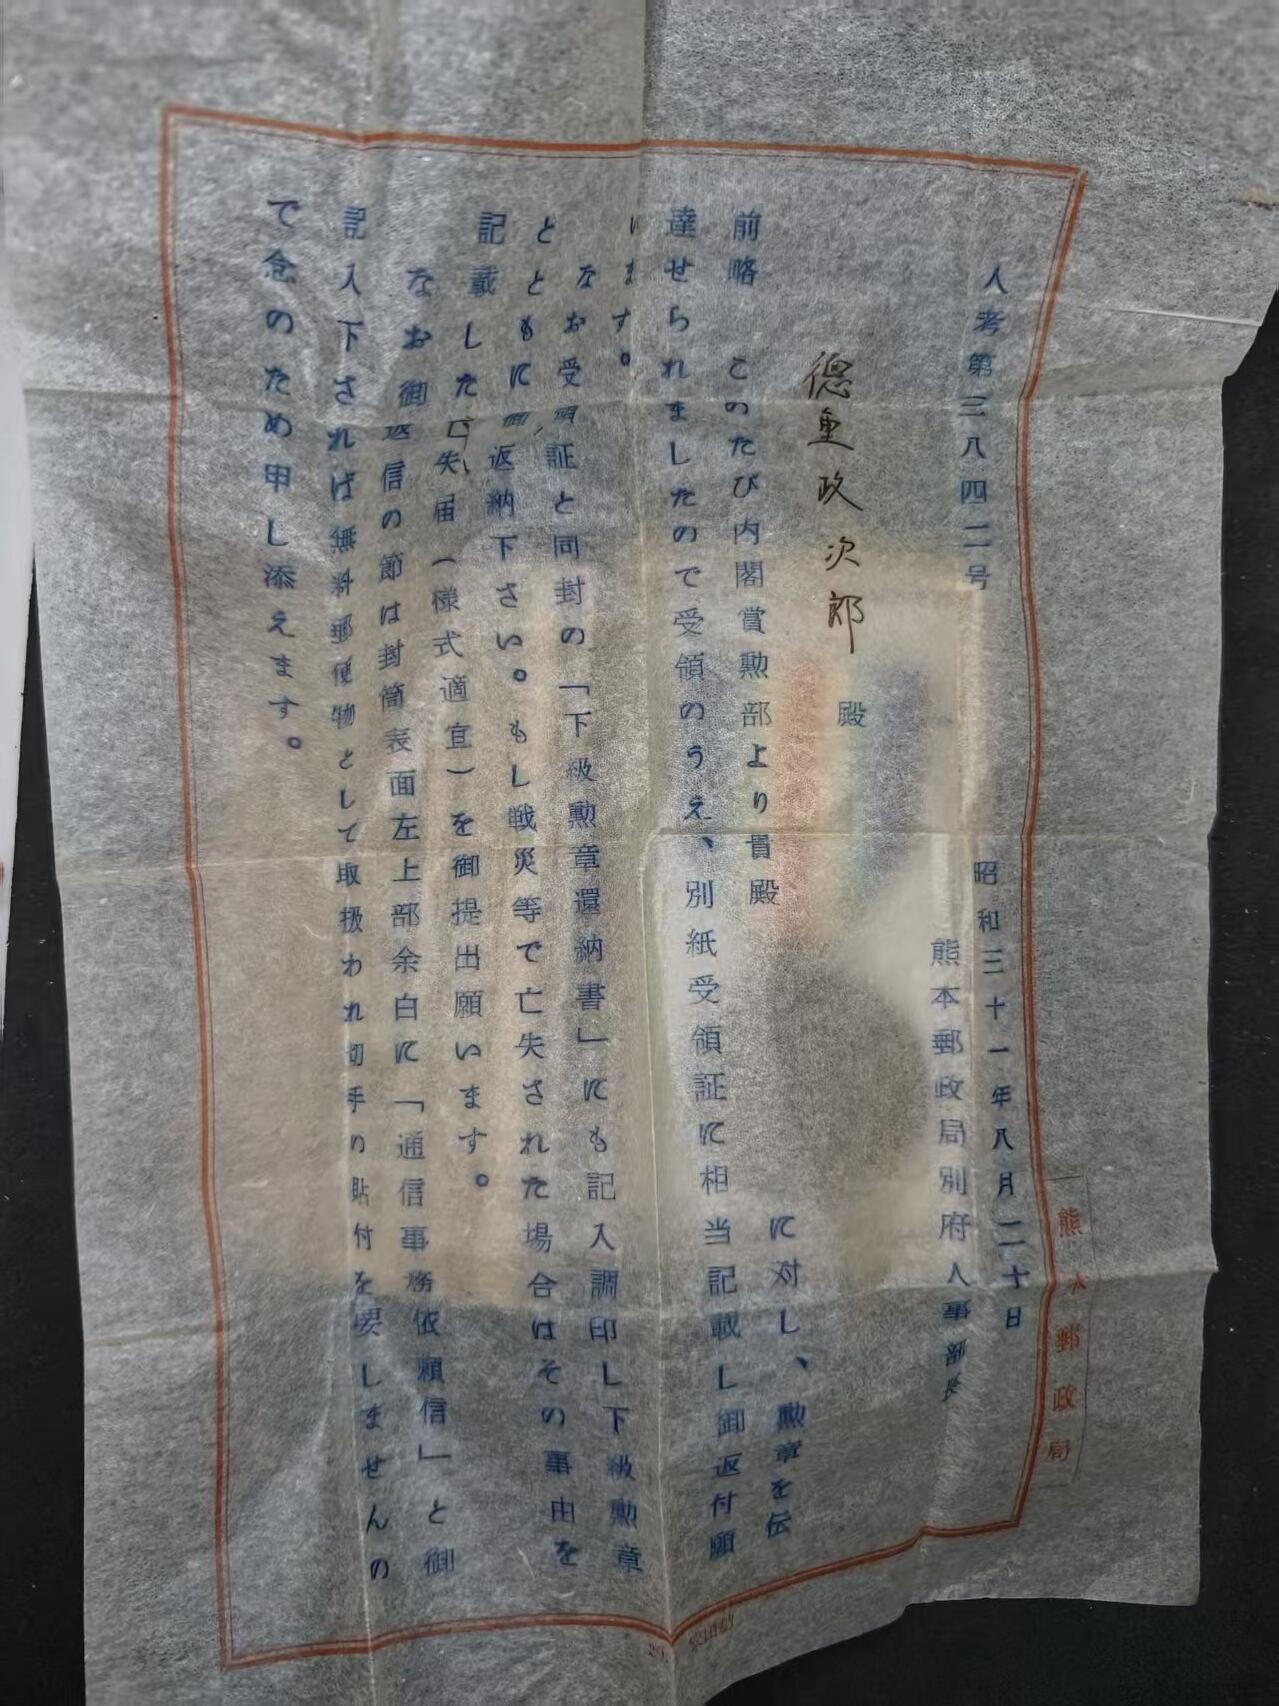 人考第三八四二号
昭和三十一年八月二十日
熊本郵政局別府人事部長
徳重政次郎 殿
前略 このたび内閣賞勲部より貴殿 に対し、勲章を伝
達せられましたので受領のうえ、別紙受領証に相当記載し御返付願
います。
なお受領証と同封の「下級勲章還納書」にも記入調印し下級勲章
とともに御返納下さい。もし戦災等で亡失された場合はその事由を
記載した亡失届(様式適宜)を御提出願います。
なお御返信の節は封筒表面左上部余白に「通信事務依頼信」と御
記入下されば無料郵便物として取扱われ切手の貼付を要しませんの
で念のため申し添えます。
熊本郵政局